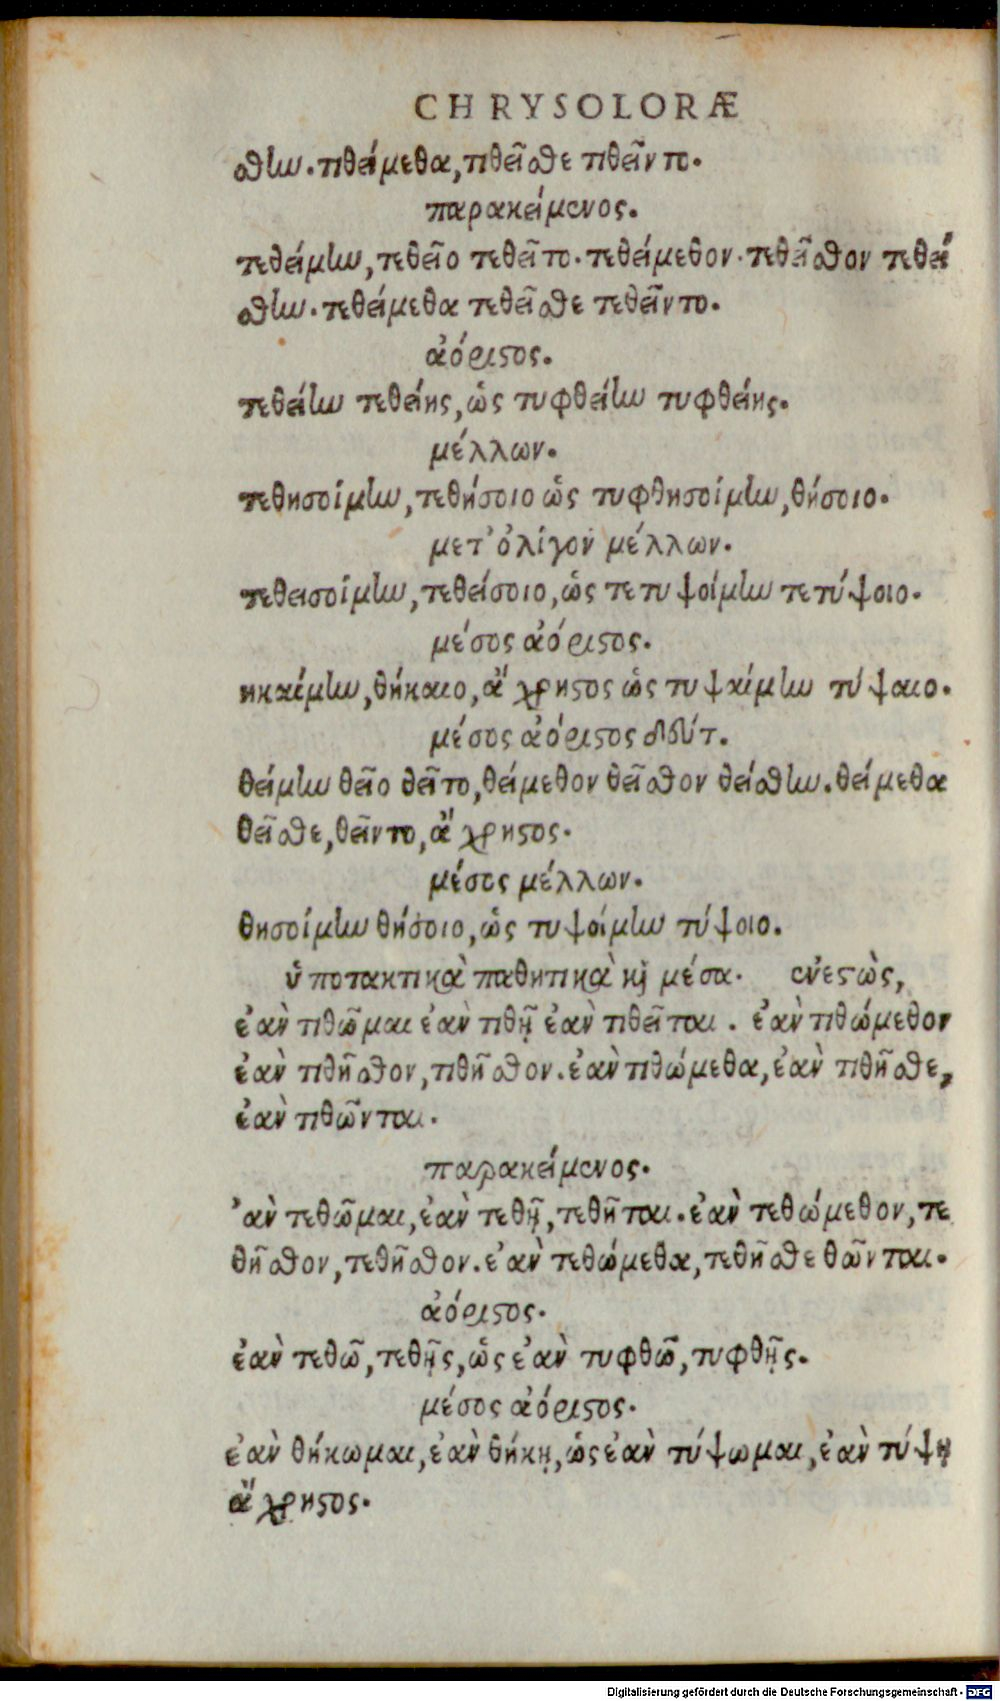 CHRYSOLORÆ
σθην. τιθείμεθα, τιθεῖσθε τιθεῖντο.
παρακείμενος.
τεθείμην, τεθεῖο τεθεῖτο. τεθείμεθον. τεθεῖσθον τεθεί
σθην. τεθείμεθα τεθεῖσθε τεθεῖντο.
ἀόριστος.
τεθείην τεθείης, ὡς τυφθείην τυφθείης.
μέλλων.
τεθησοίμην, τεθήσοιο ὡς τυφθησοίμην, θήσοιο.
μετ' ὀλίγον μέλλων.
τεθεισοίμην, τεθείσοιο, ὡς τετυψοίμην τετύψοιο.
μέσος ἀόριστος.
ηκαίμην, θήκαιο, ἄχρηστος ὡς τυψαίμην τύψαιο.
μέσος ἀόριστος δεύτ.
θείμην θεῖο θεῖτο, θείμεθον θεῖσθον θείσθην. θείμεθα
θεῖσθε, θεῖντο, ἄχρηστος.
μέσος μέλλων.
θησοίμην θήσοιο, ὡς τυψοίμην τύψοιο.
ὑποτακτικὰ παθητικὰ καὶ μέσα. ἐνεστὼς,
ἐὰν τιθῶμαι ἐὰν τιθῇ ἐὰν τιθεῖται. ἐὰν τιθώμεθον
ἐὰν τιθῆσθον, τιθῆσθον. ἐὰν τιθώμεθα, ἐὰν τιθῆσθε,
ἐὰν τιθῶνται.
παρακείμενος.
'ὰν τεθῶμαι, ἐὰν τεθῇ, τεθῆται. ἐὰν τεθώμεθον, τε
θῆσθον, τεθῆσθον. ἐὰν τεθώμεθα, τεθῆσθε θῶνται.
ἀόριστος.
ἐὰν τεθῶ, τεθῇς, ὡς ἐὰν τυφθῶ, τυφθῇς.
μέσος ἀόριστος.
ἐὰν θήκωμαι, ἐὰν θήκῃ, ὡς ἐὰν τύψωμαι, ἐὰν τύψῃ
ἄχρηστος.
Digitalisierung gefördert durch die Deutsche Forschungsgemeinschaft - DFG